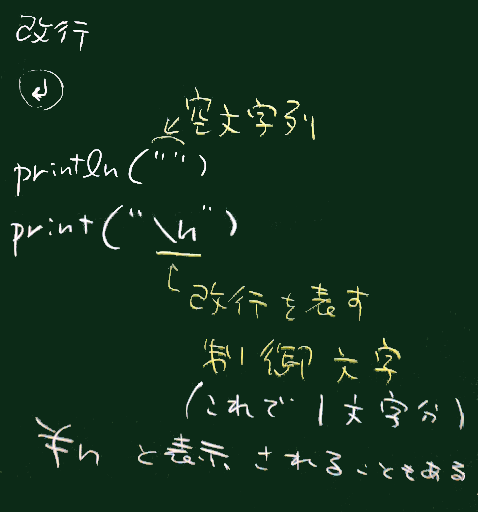 改行
↵
空文字列
println("")
print("\n")
改行を表す
制御文字
(これで1文字分)
¥n と表示されることもある